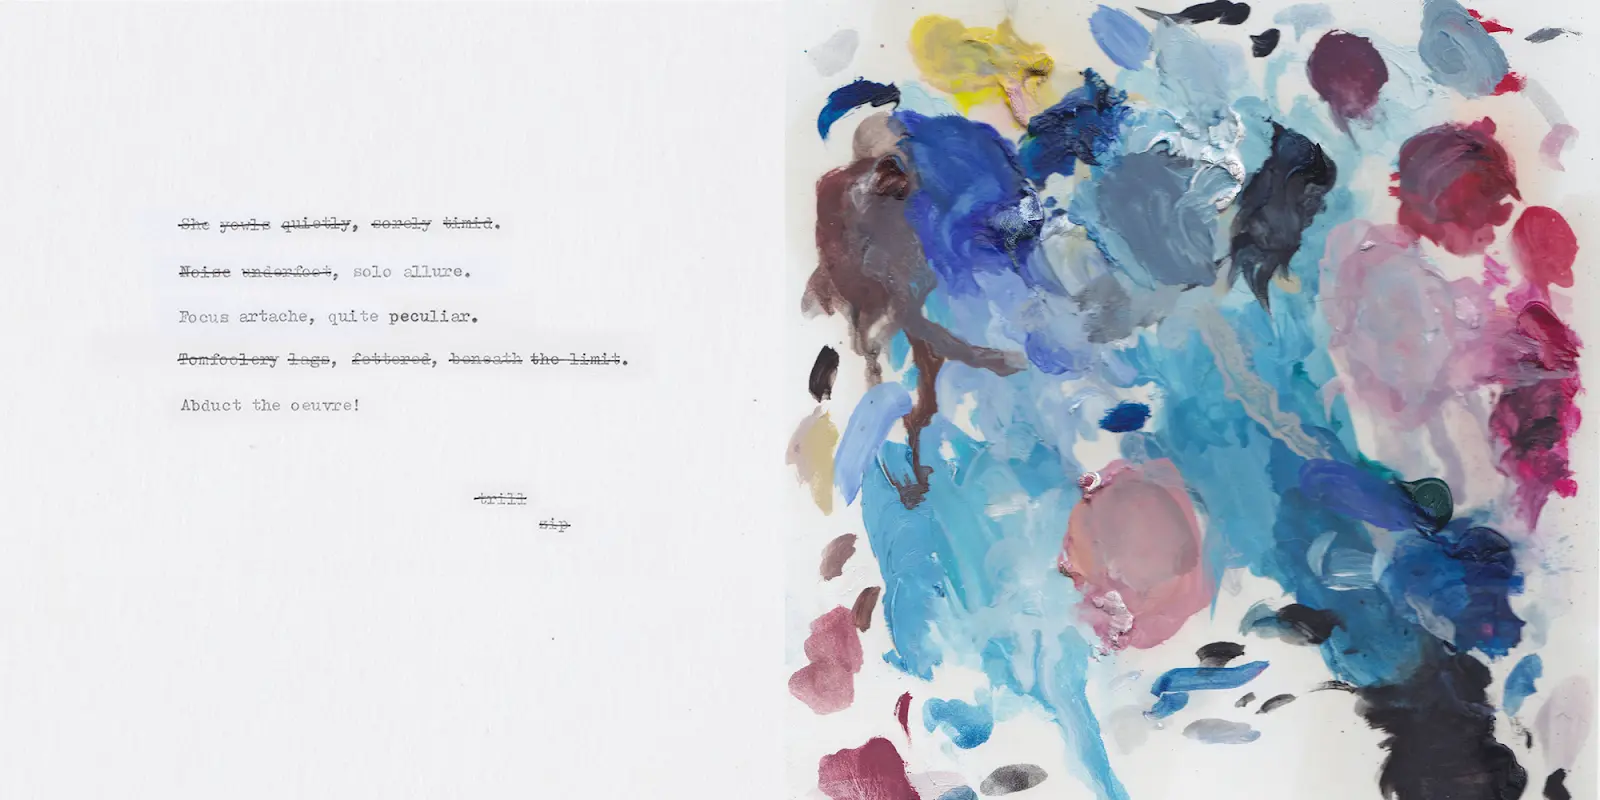 She yowls quietly, sorely timid.
Noise underfoot, solo allure.
Focus artache, quite peculiar.
Tomfoolery lags, fettered, beneath the limit.
Abduct the oeuvre!
trill
sip